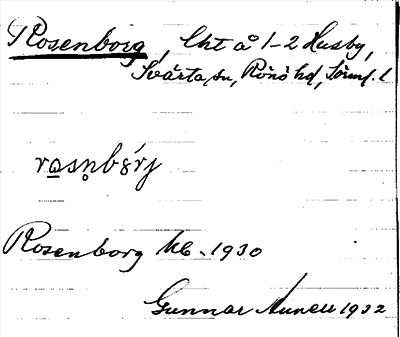 Rosenborg, lht å 1-2 Husby,
Svärta sn, Rönö hd, Sörml. l
rosn̥bórj
Rosenborg Mb. 1930
Gunnar Aunell 1932